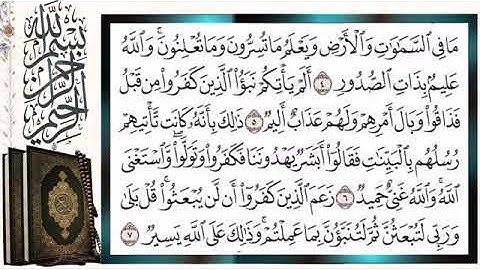 بسم الله الرحمن الرحيم
مَا فِي السَّمَاوَاتِ وَالْأَرْضِ وَيَعْلَمُ مَا تُسِرُّونَ وَمَا تُعْلِنُونَ ۚ وَاللَّهُ
عَلِيمٌ بِذَاتِ الصُّدُورِ ٤ أَلَمْ يَأْتِكُمْ نَبَؤُا الَّذِينَ كَفَرُوا مِن قَبْلُ
فَذَاقُوا وَبَالَ أَمْرِهِمْ وَلَهُمْ عَذَابٌ أَلِيمٌ ٥ ذَٰلِكَ بِأَنَّهُ كَانَت تَّأْتِيهِمْ
رُسُلُهُم بِالْبَيِّنَاتِ فَقَالُوا أَبَشَرٌ يَهْدُونَنَا فَكَفَرُوا وَتَوَلَّوا ۚ وَّاسْتَغْنَى
اللَّهُ ۚ وَاللَّهُ غَنِيٌّ حَمِيدٌ ٦ زَعَمَ الَّذِينَ كَفَرُوا أَن لَّن يُبْعَثُوا ۚ قُلْ بَلَىٰ
وَرَبِّي لَتُبْعَثُنَّ ثُمَّ لَتُنَبَّؤُنَّ بِمَا عَمِلْتُمْ ۚ وَذَٰلِكَ عَلَى اللَّهِ يَسِيرٌ ٧